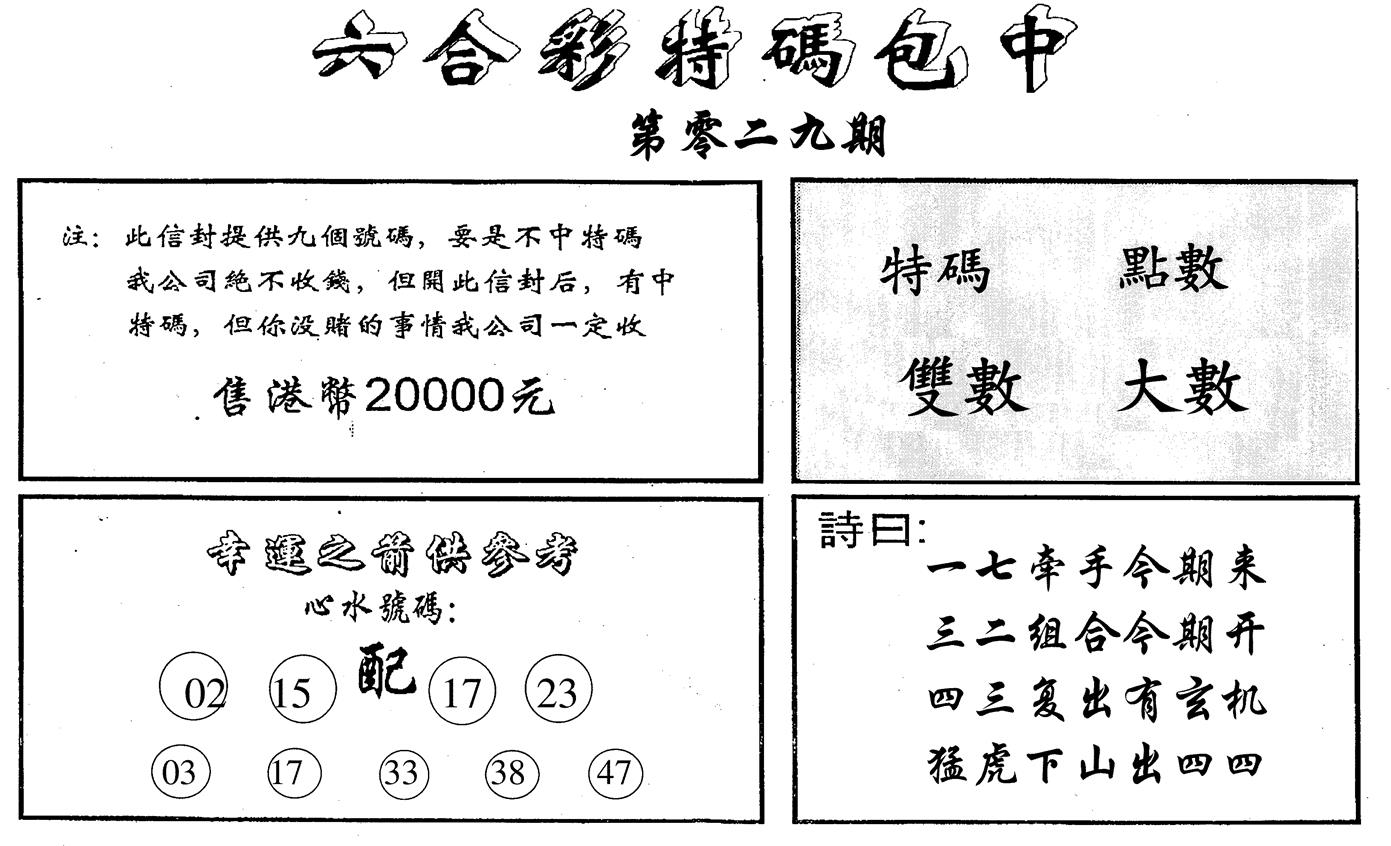 六合彩特碼包中
第零二九期
注：此信封提供九個號碼，要是不中特碼
我公司絶不收錢，但開此信封后，有中
特碼，但你没賭的事情我公司一定收
售港幣20000元
特碼 點數
雙數 大數
幸運之箭供參考
心水號碼：
02 15 配 17 23
03 17 33 38 47
詩曰：
一七牵手今期来
三二组合今期开
四三复出有玄机
猛虎下山出四四